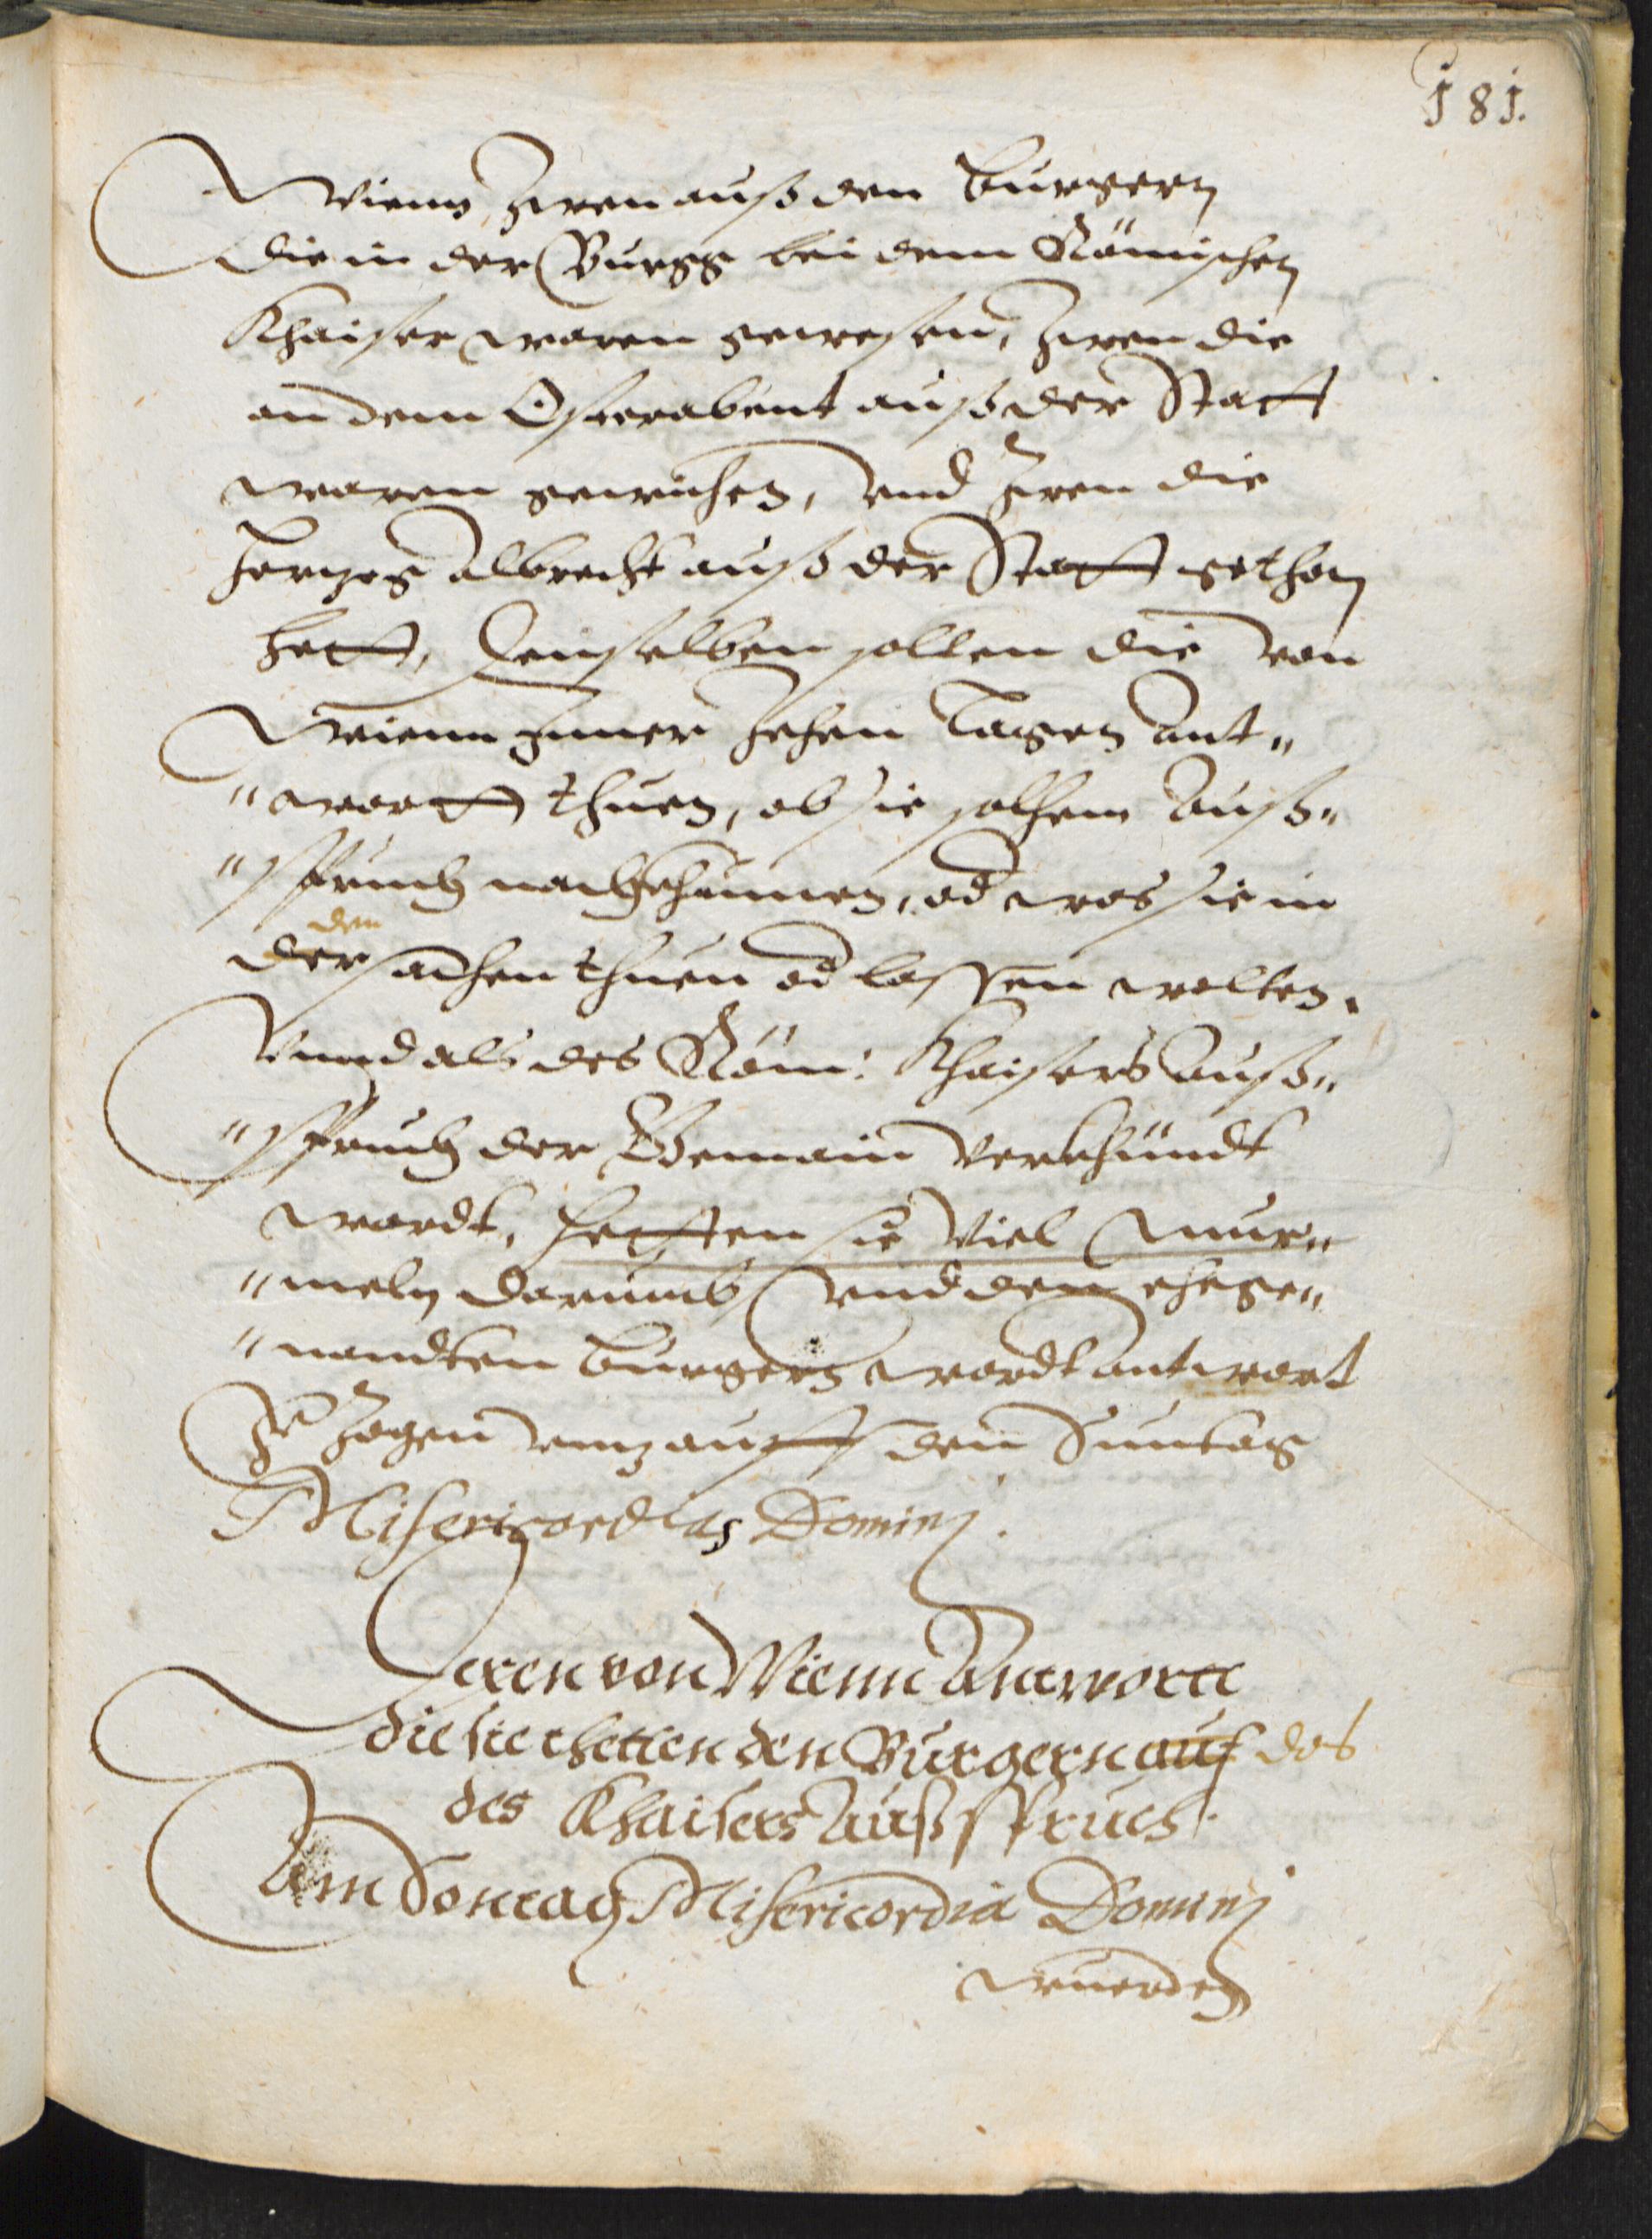 181.
Wienn, Zwen auß den Burgern
die in der Burgg bei dem Römischen
Khaiser waren gewesen, Zwen die
an dem Osterabent auß der Statt
waren gewichen, vnd Zwen die
Herzog Albrecht auß der Statt gethon
hett, denselben sollen die von
Wienn Inner Zehen Tagen Ant„
„wortt thuen, ob sie solhem Auß„
„spruch nachkhumen, od was sie in
den
der sachen thuen od lassen wolten.
Vnnd als des Röm: Khaisers Auß„
„spruch der Gemain verkhündt
wardt, hetten sie viel Mur„
„meln darumb, vnd den ehege„
„nandten Burgern wardt antwort
Zu Zogen vnz auff den Suntag
Misericordias Dominj.
Deren von Wienn Antwortt
die sie thetten den Burgern auf des
des Khaisers Außspruch.
Am Sontag Misericordia Dominj
wuerden